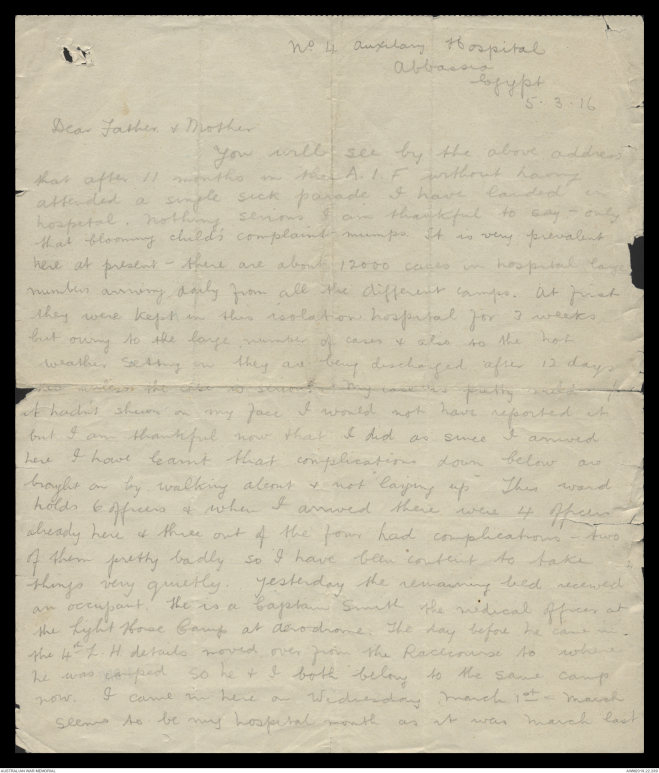 No 4 Auxilary Hospital
Abbassia
Egypt
5.3.16
Dear Father & Mother
You will see by the above address
that after 11 months in the A.I.F without having
attended a single sick parade I have landed in
hospital. Nothing serious I am thankful to say - only
that blooming child's complaint - mumps. It is very prevalent
here at present - there are about 12000 cases in hospital large
numbers arriving daily from all the different camps. At first
they were kept in this isolation hospital for 3 weeks
but owing to the large number of cases & also to the hot
weather setting in they are being discharged after 12 days
unless the case is serious. My case is pretty mild
it hadn't shewn on my face I would not have reported it
but I am thankful now that I did as since I arrived
here I have learnt that complications down below are
brought on by walking about & not "laying up" This ward
holds 6 officers & when I arrived there were 4 officers
already here & three out of the four had complications - two
of them pretty badly so I have been content to take
things very quietly. Yesterday the remaining bed received
an occupant. He is a Captain Smith the medical officer at
the Light Horse Camp at Aerodrome. The day before he came in
the 4th L.H details moved over from the Racecourse to where
he was camped so he & I both belong to the same camp
now. I came in here on Wednesday March 1st - March
seems to be my hospital month as it was March last
AUSTRALIAN WAR MEMORIAL